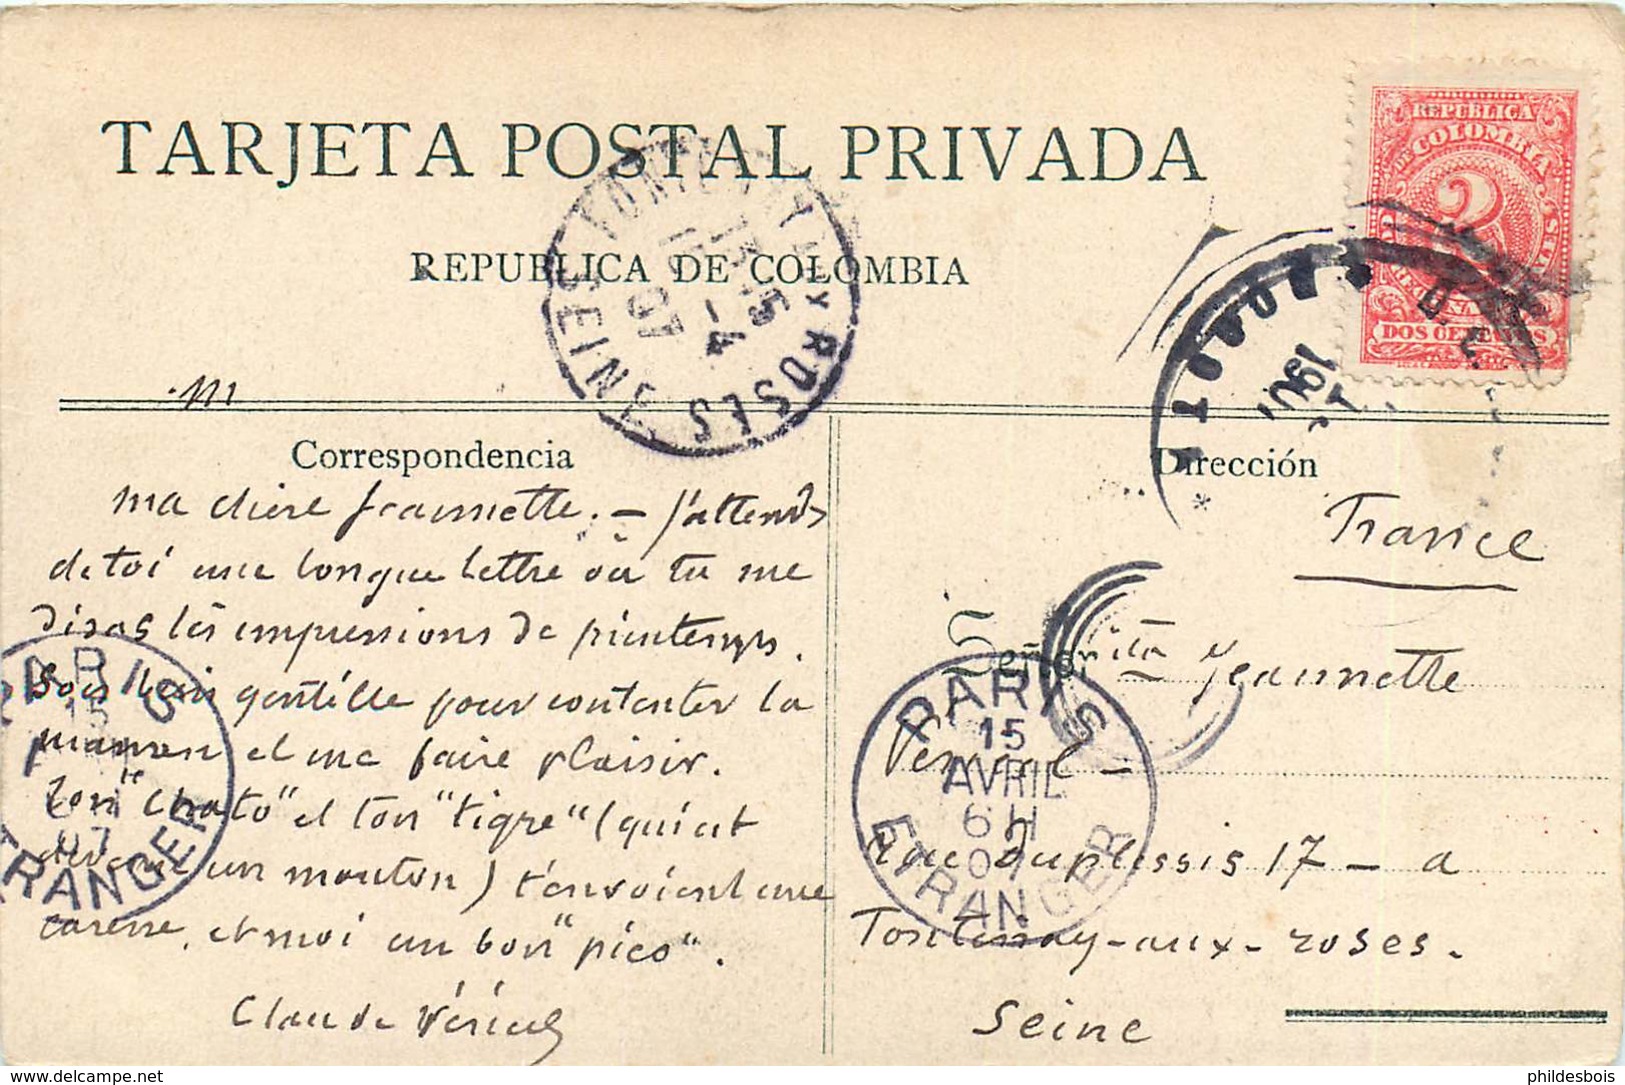 TARJETA POSTAL PRIVADA
REPUBLICA DE COLOMBIA
REPUBLICA
DE COLOMBIA
2
DOS CENTAVOS
ROSES
SEINE
15 - 4
07
BOGOTA
Correspondencia
ma chère Jeannette. — J'attends
de toi une longue lettre où tu me
diras tes impressions de printemps.
Sois bien gentille pour contenter la
maman et me faire plaisir.
Ton "Chato" et ton "tigre" (qui est
devenu un mouton) t'envoient une
caresse, et moi un bon "pico".
Claude
Dirección
France
Señorita Jeannette
Rue Duplessis 17 – a
Fontenay-aux-roses.
Seine
PARIS
15
07
ETRANGER
PARIS
15
AVRIL
6 H
07
ETRANGER
phildesbois